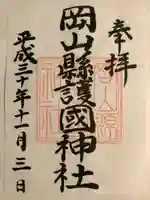 奉拝
岡山縣護國神社
平成三十年十一月三日